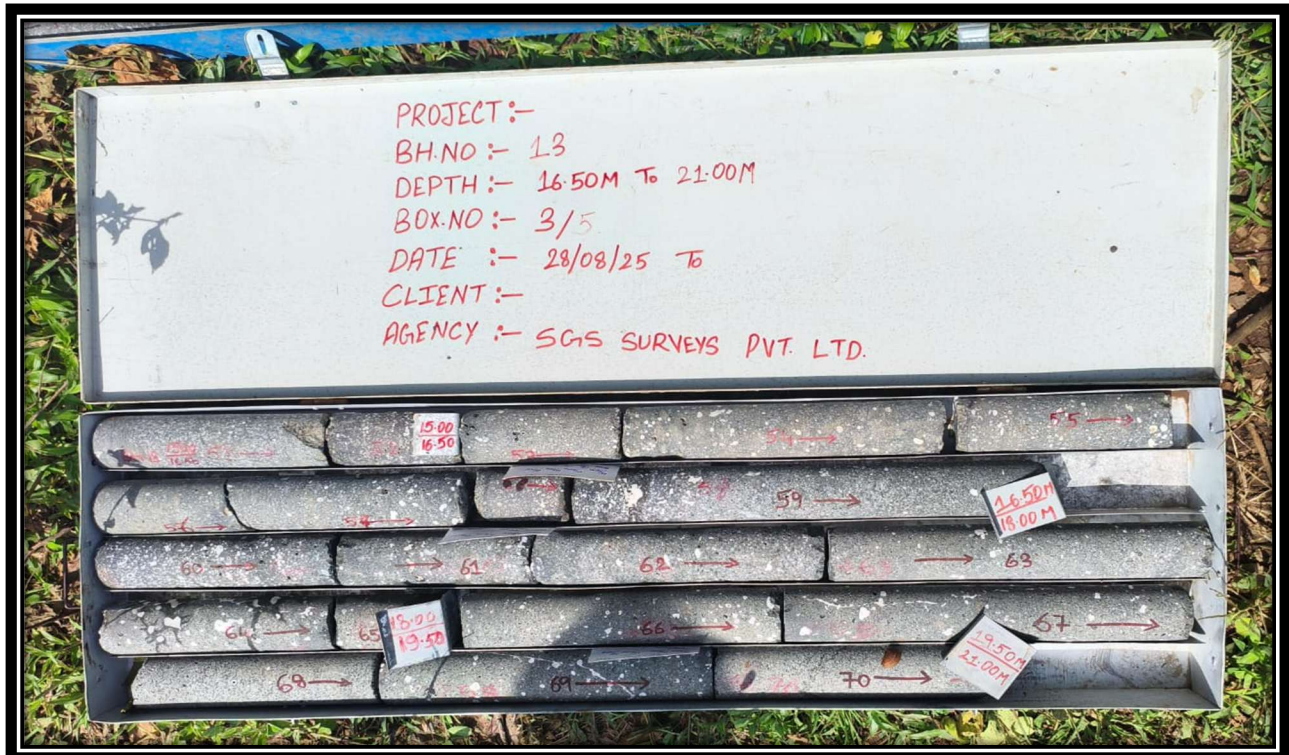 PROJECT :-
BH.NO :- 13
DEPTH :- 16.50M To 21.00M
BOX.NO :- 3/5
DATE :- 28/08/25 To
CLIENT :-
AGENCY :- SGS SURVEYS PVT. LTD.
15.00
16.50
54
55
56
59
16.50M
18.00M
60
61
62
63
64
65
18.00
19.50
66
67
68
69
70
19.50M
21.00M